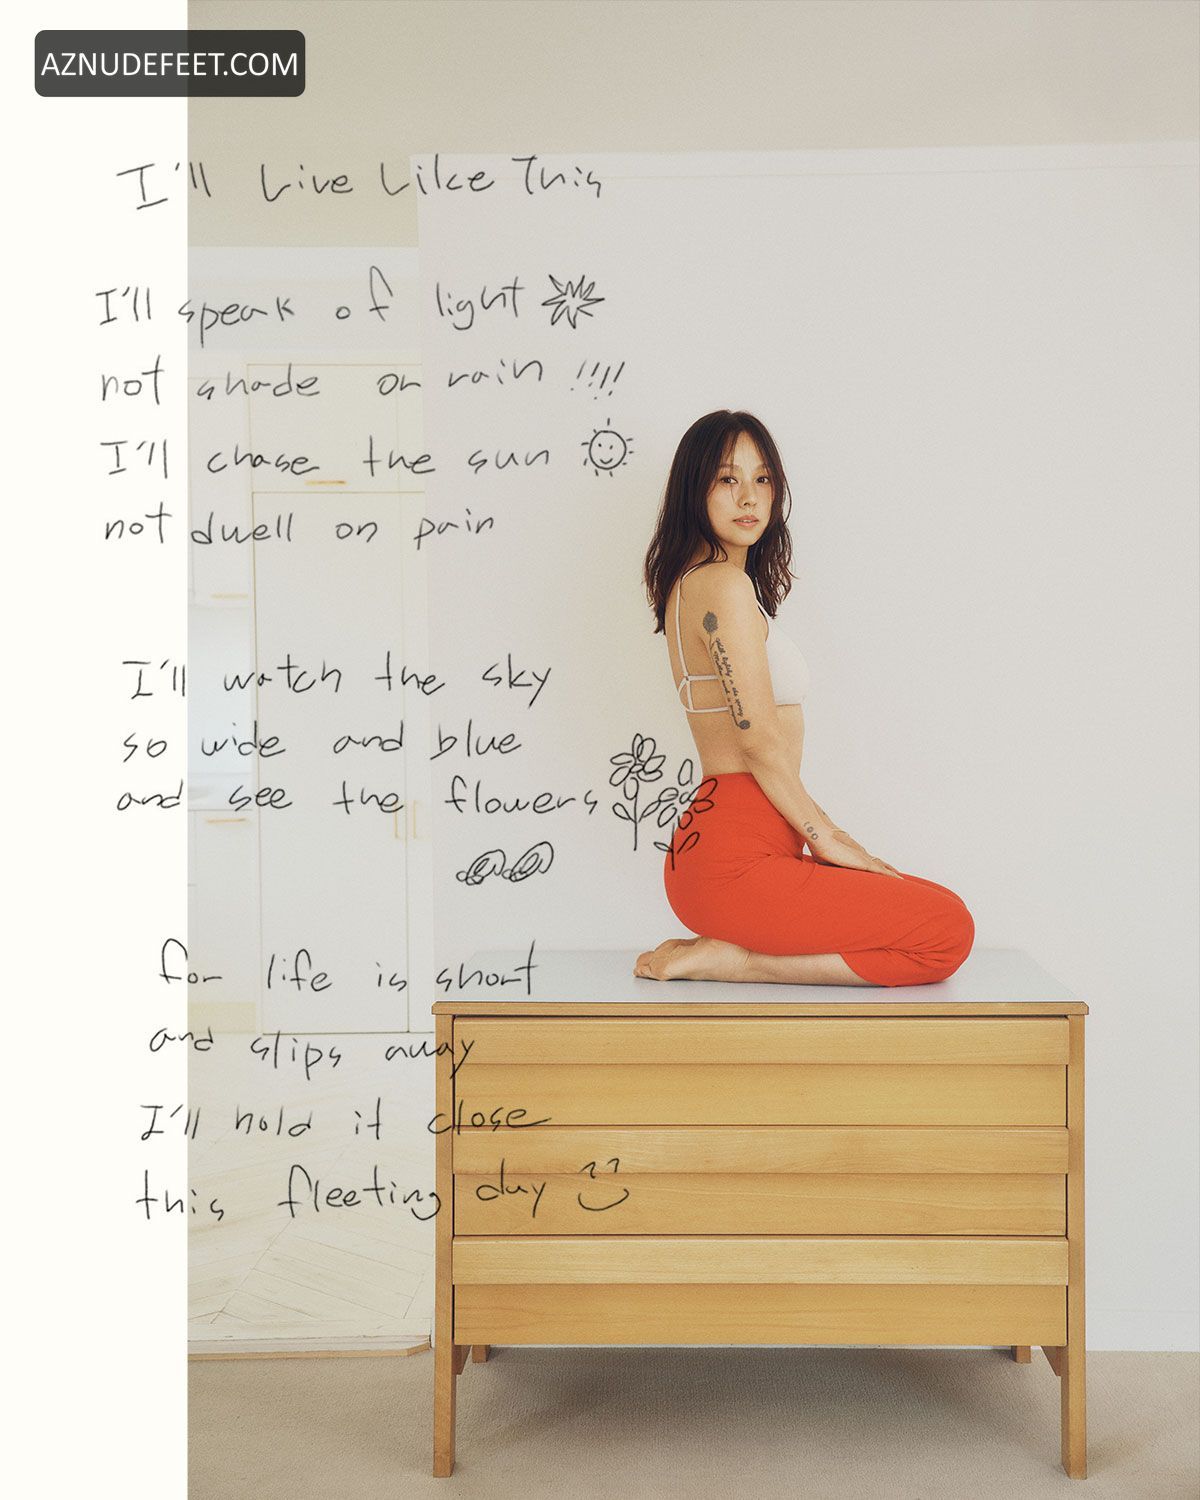 AZNUDEFEET.COM
I'll Live Like This
I'll speak of light
not shade or rain !!!!
I'll chase the sun
not dwell on pain
I'll watch the sky
so wide and blue
and see the flowers
for life is short
and slips away
I'll hold it close
this fleeting day